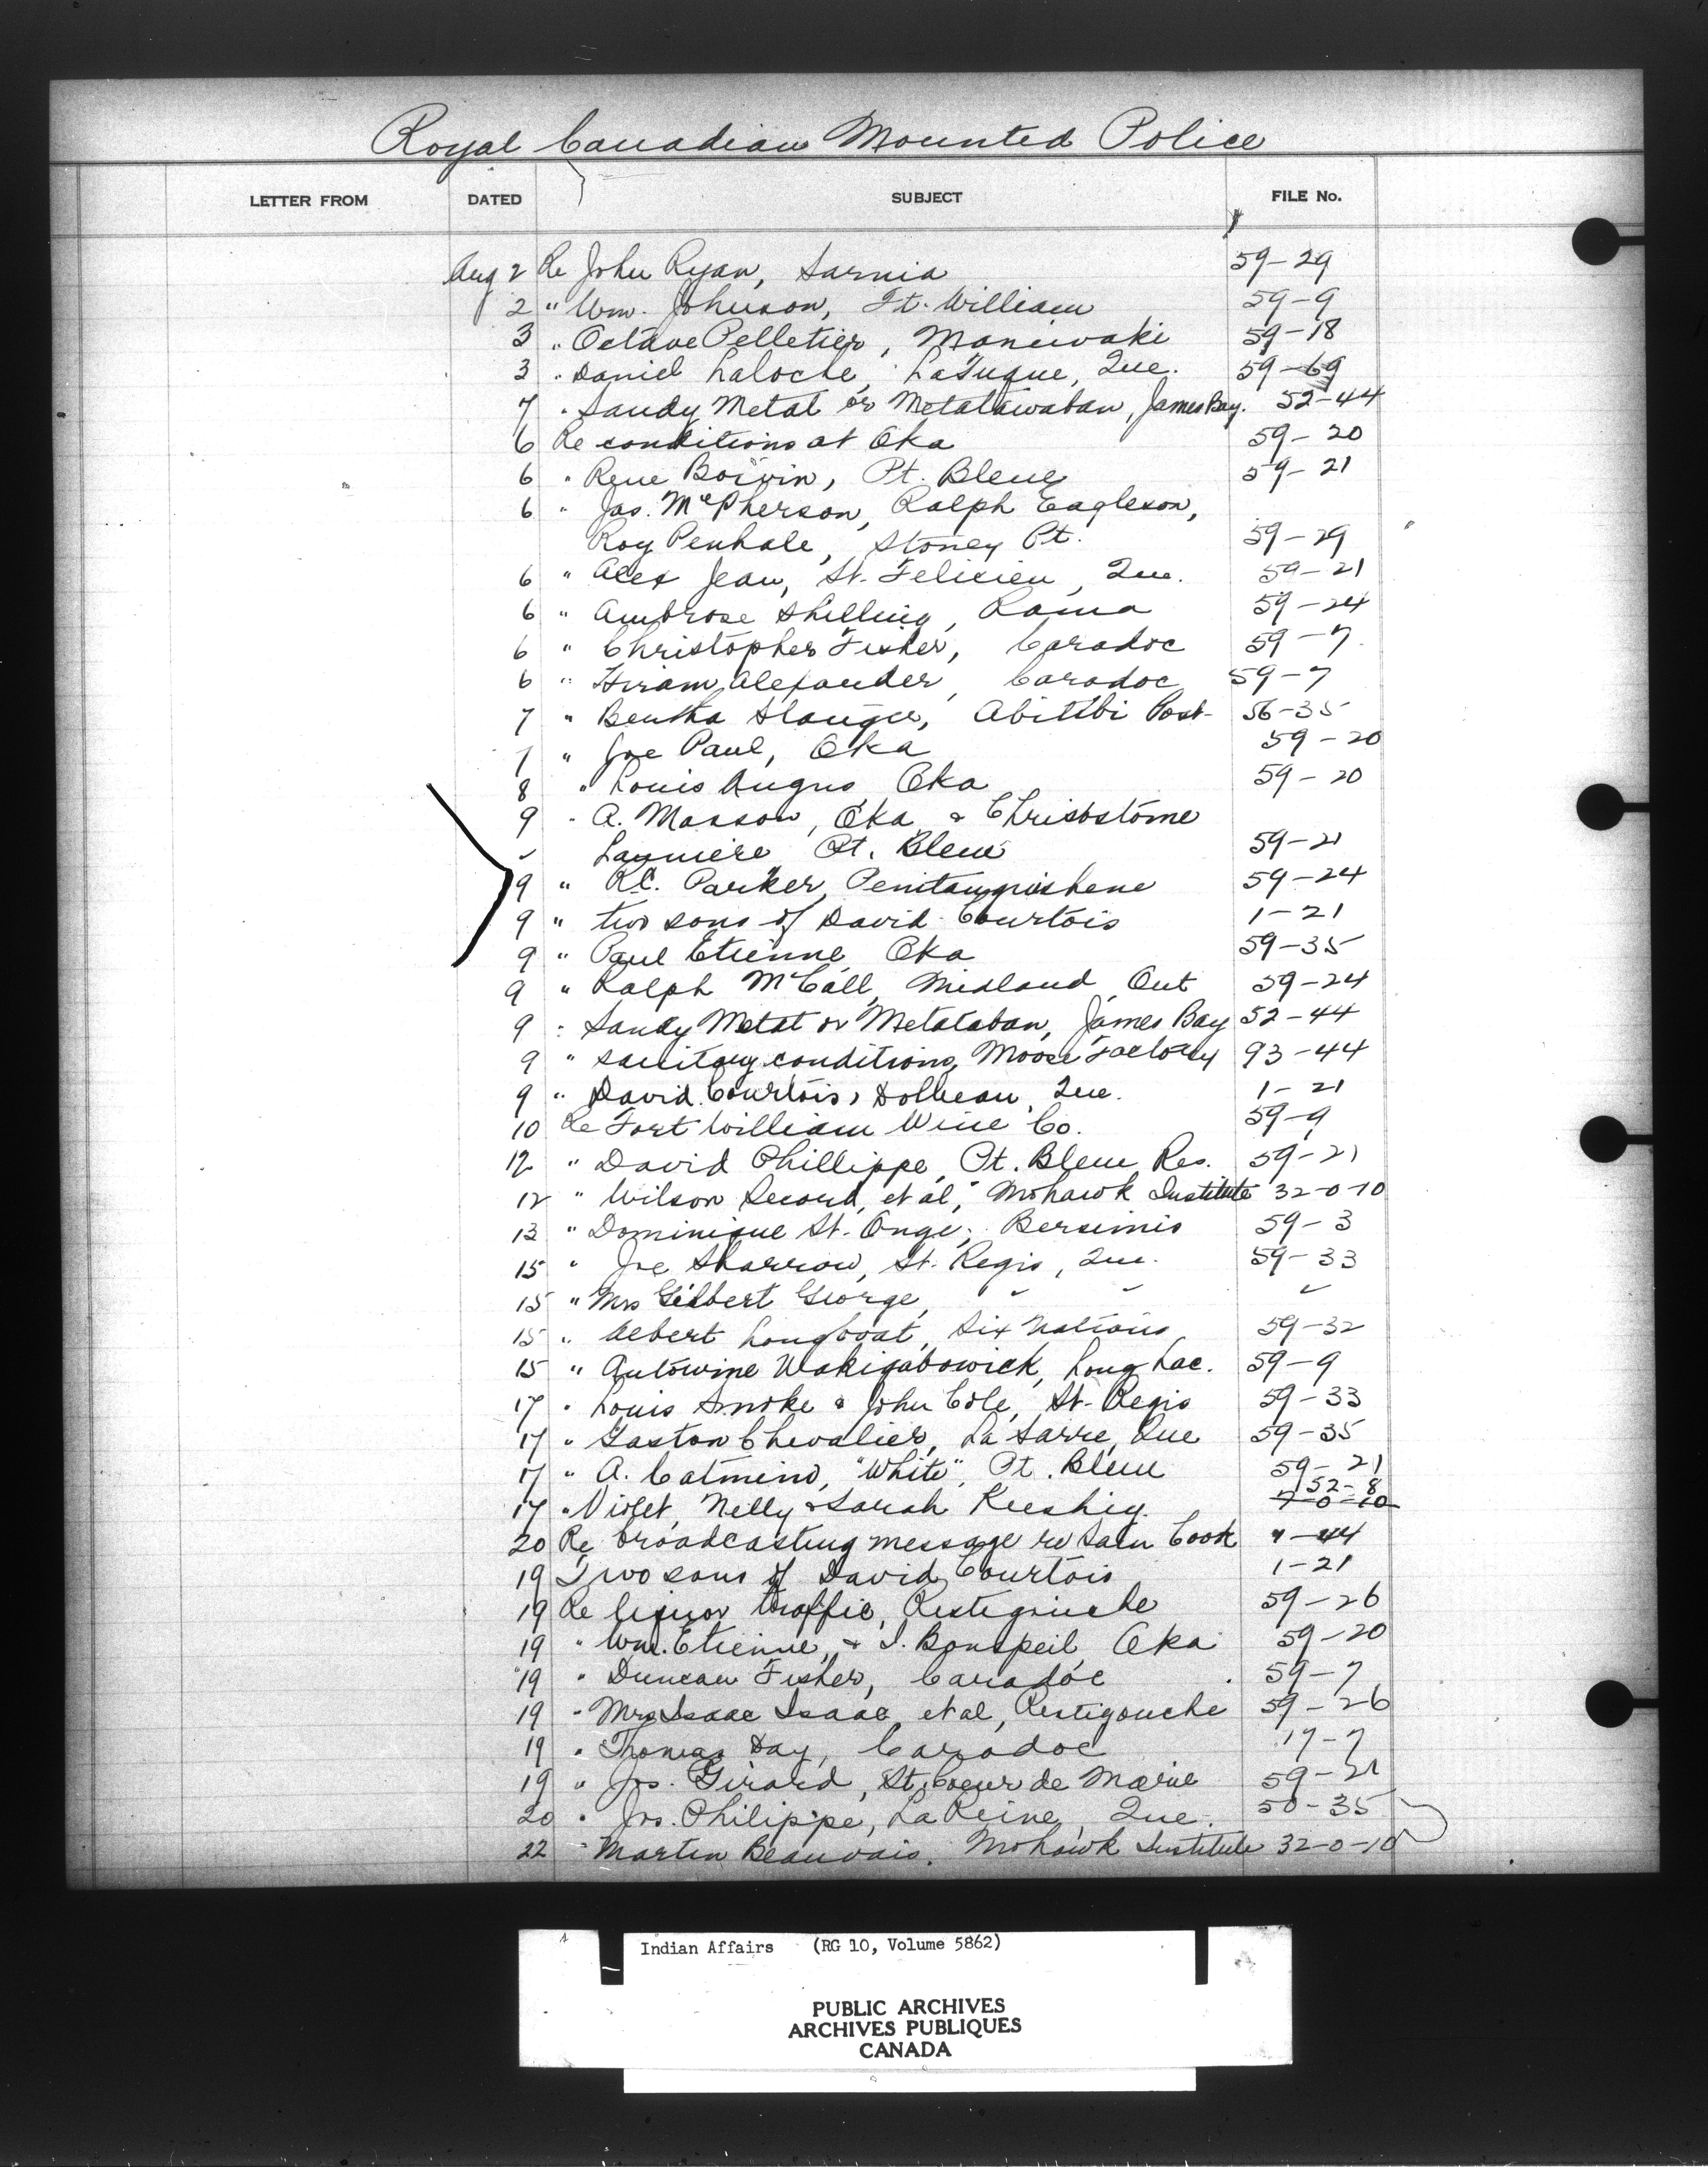 Royal Canadian Mounted Police
LETTER FROM DATED SUBJECT FILE No.
Aug 2 Re John Ryan, Sarnia 59-29
2 " Wm. Johnson, Ft. William 59-9
3 " Octave Pelletier, Maniwaki 59-18
3 " Daniel Laloche, LaTuque, Que. 59-69
7 " Sandy Metat or Metatawaban, James Bay. 52-44
6 Re conditions at Oka 59-20
6 " Rene Boivin, Pt. Bleue 59-21
6 " Jas. McPherson, Ralph Eagleson,
Roy Penhale, Stoney Pt. 59-29
6 " Alex Jean, St. Felicien, Que. 59-21
6 " Ambrose Shilling, Rama 59-24
6 " Christopher Fisher, Caradoc 59-7
6 " Hiram Alexander, Caradoc 59-7
7 " Bertha Abittibi Post 56-35
7 " Joe Paul, Oka 59-20
8 " Louis Angus, Oka 59-20
9 " A. Masson, Oka & Chrisostome
Pt. Bleue 59-21
9 " R.C. Parker, Penitanguishene 59-24
9 " two sons of David Courtois 1-21
9 " Paul Etienne, Oka 59-35
9 " Ralph McCall, Midland, Ont 59-24
9 " Sandy Metat or Metataban, James Bay 52-44
9 " sanitary conditions, Moose Factory 93-44
9 " David Courtois, Dolbeau, Que. 1-21
10 Re Fort William Wine Co. 59-9
12 " David Phillippe, Pt. Bleue Res. 59-21
12 " Wilson Secord, et al, Mohawk Institute 32-0-10
13 " Dominique St. Onge, Bersimis 59-3
15 " Joe Sharrow, St. Regis, Que. 59-33
15 " Mrs Gilbert George, " " "
15 " Albert Longboat, Six Nations 59-32
15 " Antowine Wakigabowick, Long Lac. 59-9
17 " Louis Smoke & John Cole, St. Regis 59-33
17 " Gaston Chevalier, La Sarre, Que 59-35
17 " A. Catmino, "White", Pt. Bleue 59-21
17 " Violet, Nelly & Sarah Keeshig. 52-8
7-0-10
20 Re broadcasting message re Sam Cook 4-44
19 Two sons of David Courtois 1-21
19 Re liquor traffic, Restigouche 59-26
19 " Wm. Etienne, & I. Bonspeil, Oka 59-20
19 " Duncan Fisher, Caradoc 59-7
19 " Mrs Isaac Isaac, et al, Restigouche 59-26
19 " Thomas Day, Caradoc 17-7
19 " Jos. Girard, St. Coeur de Marie 59-21
20 " Jos. Philippe, La Reine, Que. 50-35
22 " Martin Beauvais. Mohawk Institute 32-0-10
Indian Affairs (RG 10, Volume 5862)
PUBLIC ARCHIVES
ARCHIVES PUBLIQUES
CANADA